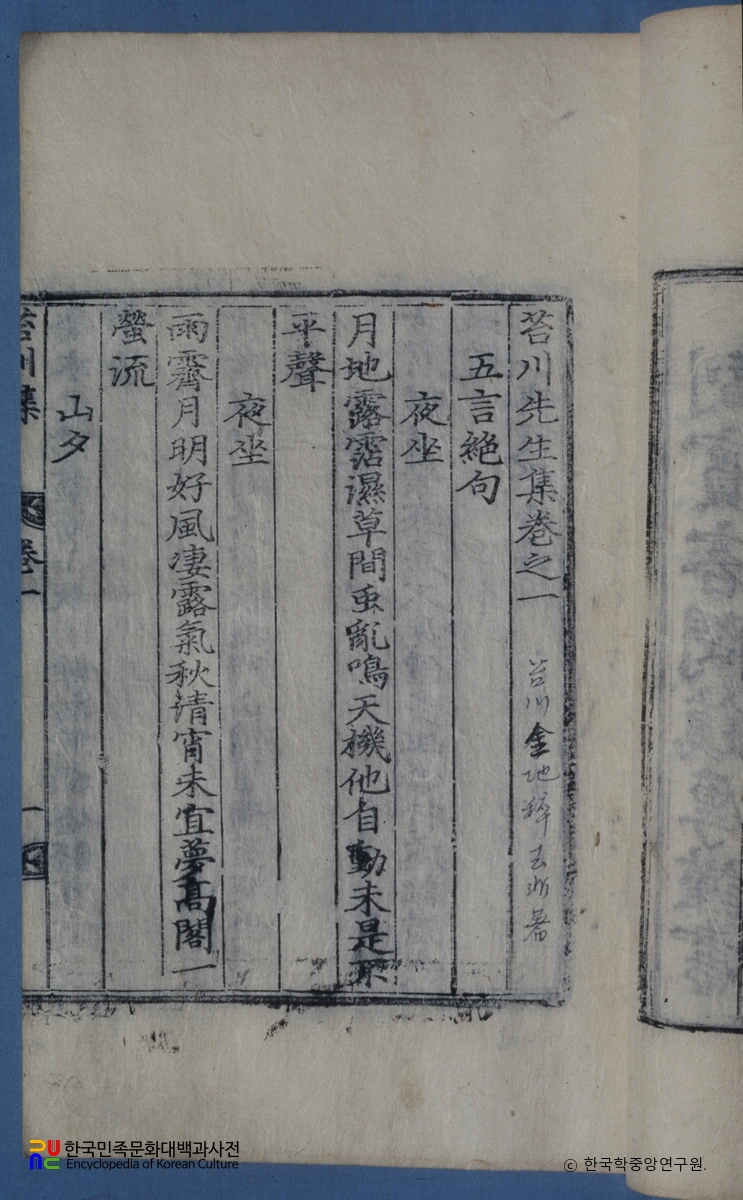 苔川先生集卷之一 苔川金地粹去非著
五言絶句
夜坐
月地露霑濕草間虫亂鳴天機他自動未是不
平聲
夜坐
雨霽月明好風凄露氣秋清宵未宜夢高閣一
螢流
山夕
苔川集 卷一 一
한국민족문화대백과사전
Encyclopedia of Korean Culture
ⓒ 한국학중앙연구원.